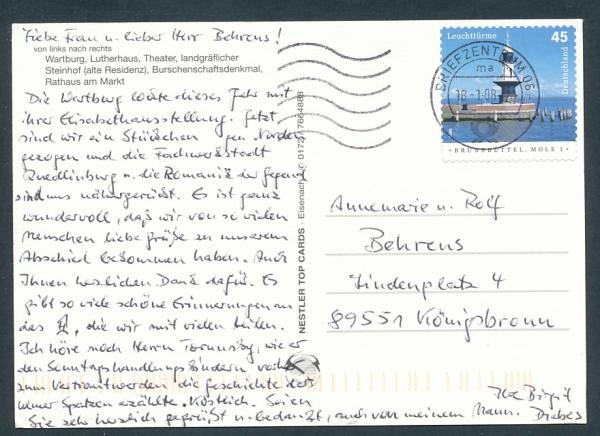 Liebe Frau u. lieber Herr Behrens!
von links nach rechts
Wartburg, Lutherhaus, Theater, landgräflicher
Steinhof (alte Residenz), Burschenschaftsdenkmal,
Rathaus am Markt
Die Wartburg lockte dieses Jahr mit
ihrer Elisabethausstellung. Jetzt
sind wir ein Stückchen gen Norden
gezogen und die Fachwerkstadt
Quedlinburg u. die Romanik der Gegend
sind uns nähergerückt. Es ist ganz
wundervoll, daß wir von so vielen
Menschen liebe Grüße zu unserem
Abschied bekommen haben. Auch
Ihnen herzlichen Dank dafür. Es
gibt so viele schöne Erinnerungen an
das die wir mit vielen teilen.
Ich höre noch Herrn wie er
den
zum Vertrautwerden die Geschichte des
Ulmer Spatzen erzählte. Köstlich. Seien
Sie sehr herzlich gegrüßt u. bedankt, auch von meinem Mann.
Ihre Birgit
NESTLER TOP CARDS · Eisenach · 0172/7664888
Leuchttürme 45
Deutschland
BRUNSBÜTTEL, MOLE 1
BRIEFZENTRUM 06
ma
18-1-08
Annemarie u. Rolf
Behrens
Lindenplatz 4
89551 Königsbronn